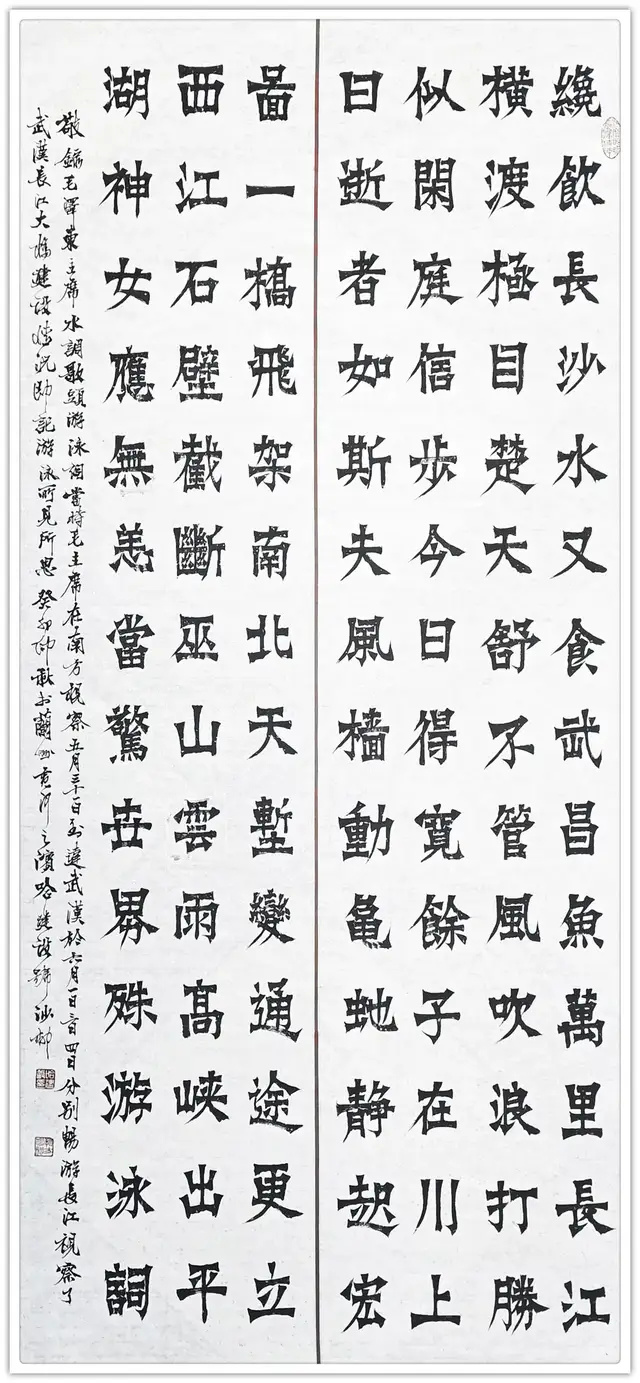 纔飲長沙水又食武昌魚萬里長江
橫渡極目楚天舒不管風吹浪打勝
似閑庭信步今日得寬餘子在川上
曰逝者如斯夫風檣動龜蛇靜起宏
啚一橋飛架南北天塹變通途更立
西江石壁截斷巫山雲雨高峽出平
湖神女應無恙當驚世界殊游泳詞
敬錄毛澤東主席水調歌頭游泳詞當時毛主席在南方視察五月三十日到達武漢於六月一日三日四日分別暢游長江視察了
武漢長江大橋建設情況即記游泳所見所思癸卯仲秋於蘭州黃河之濱哈建設號沙柳